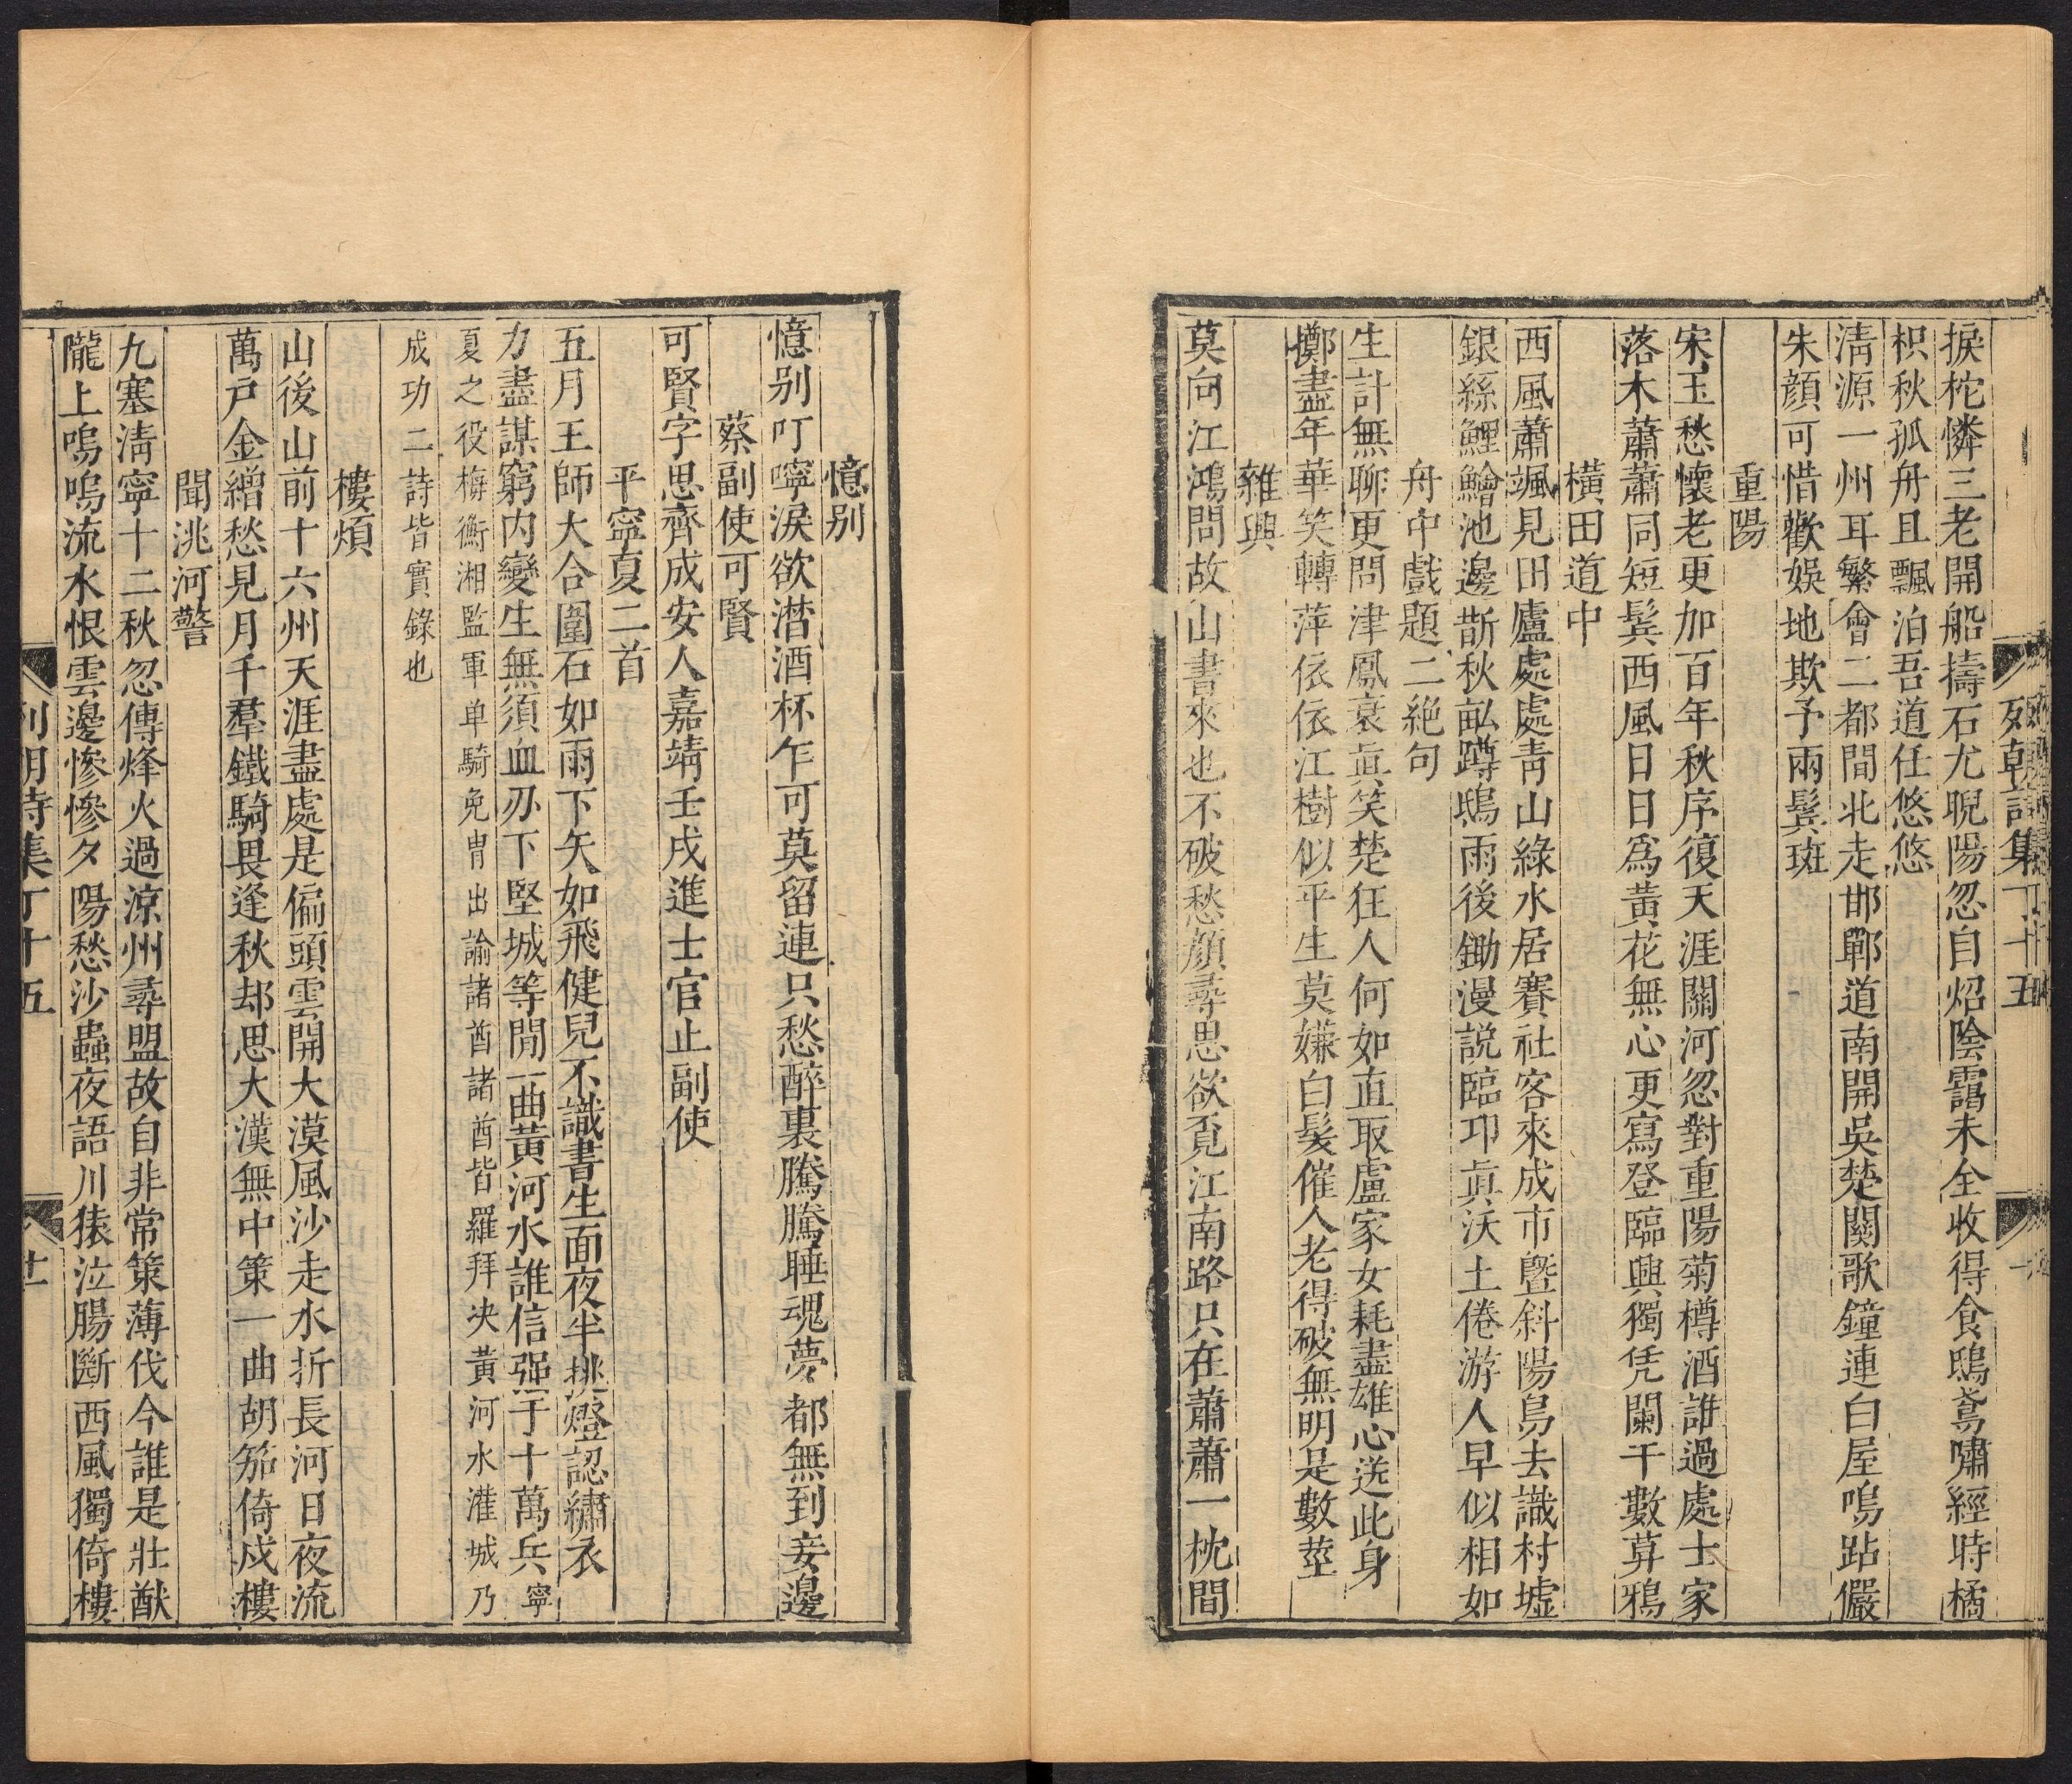 列朝詩集丁十五
捩柁憐三老開船擣石尤晛陽忽自炤陰靄未全收得食鴟鳶嘯經時橘
枳秋孤舟且飄泊吾道任悠悠
淸源一州耳繁會二都間北走邯鄲道南開吳楚關歌鐘連白屋鳴跕儼
朱顏可惜歡娛地欺予兩鬂斑
重陽
宋玉愁懷老更加百年秋序復天涯關河忽對重陽菊樽酒誰過處士家
落木蕭蕭同短鬂西風日日爲黃花無心更寫登臨興獨凭闌干數暮鴉
橫田道中
西風蕭颯見田廬處處靑山綠水居賽社客來成市曁斜陽鳥去識村墟
銀絲鯉鱠池邊斮秋畝蹲鴟雨後鋤漫說臨卭眞沃土倦游人早似相如
舟中戲題二絕句
生計無聊更問津鳳衰眞笑楚狂人何如直取盧家女耗盡雄心送此身
擲盡年華笑轉萍依依江樹似平生莫嫌白髮催人老得破無明是數莖
雜興
莫向江鴻問故山書來也不破愁顏尋思欲覓江南路只在蕭蕭一枕間
憶别
憶别叮嚀淚欲潸酒杯乍可莫留連只愁醉裏騰騰睡魂夢都無到妾邊
蔡副使可賢
可賢字思齊成安人嘉靖壬戌進士官止副使
平寧夏二首
五月王師大合圍石如雨下矢如飛健兒不識書生面夜半挑燈認繡衣
力盡謀窮内變生無須血刃下堅城等閒一曲黃河水誰信强于十萬兵寧
夏之役梅衡湘監軍单騎免冑出諭諸酋諸酋皆羅拜决黃河水灌城乃
成功二詩皆實錄也
樓煩
山後山前十六州天涯盡處是偏頭雲開大漠風沙走水折長河日夜流
萬戶金繒愁見月千羣鐵騎畏逢秋却思大漢無中策一曲胡笳倚戍樓
聞洮河警
九塞淸寧十二秋忽傳烽火過涼州尋盟故自非常策薄伐今誰是壯猷
隴上嗚嗚流水恨雲邊慘慘夕陽愁沙蟲夜語川猿泣腸斷西風獨倚樓
列朝詩集丁十五
廿